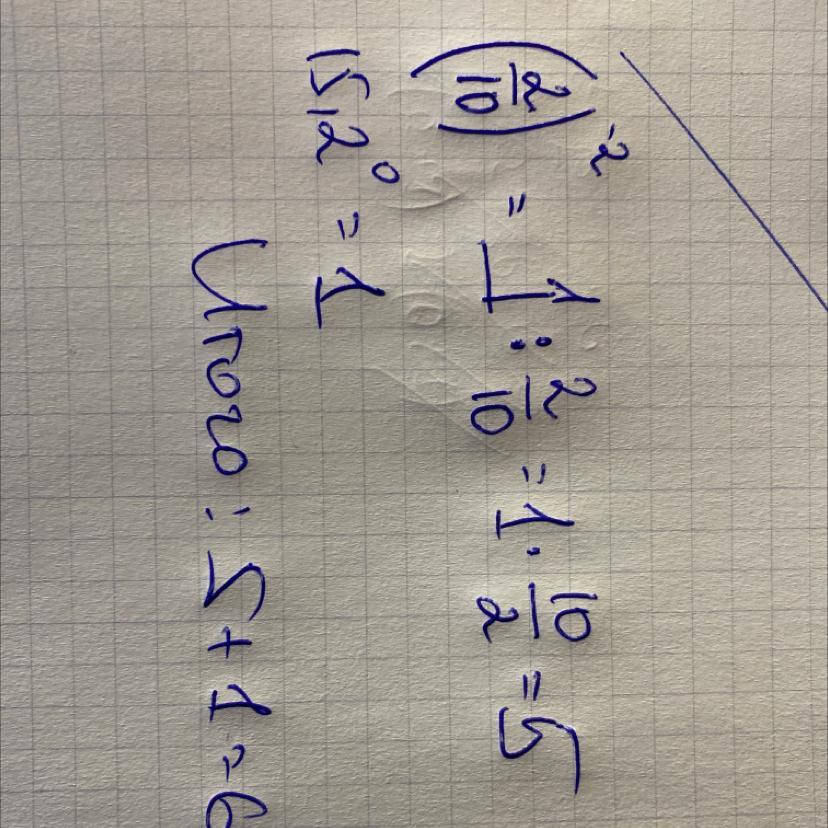 (2/10)⁻² = 1 : 2/10 = 1 · 10/2 = 5
1512⁰ = 1
Итого: 5 + 1 = 6